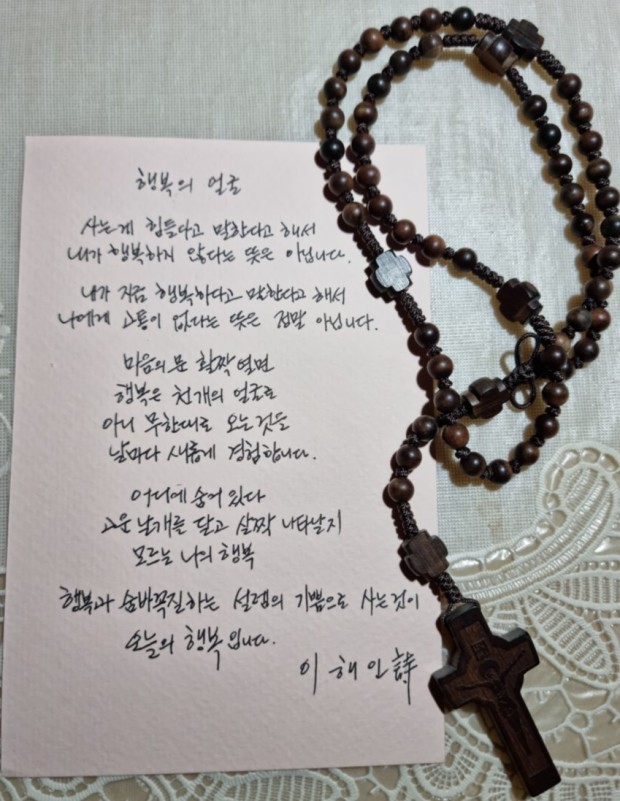 행복의 얼굴
사는게 힘들다고 말한다고 해서
내가 행복하지 않다는 뜻은 아닙니다.
내가 지금 행복하다고 말한다고 해서
나에게 고통이 없다는 뜻은 정말 아닙니다.
마음의 문 활짝 열면
행복은 천개의 얼굴로
아니 무한대로 오는 것을
날마다 새롭게 경험합니다.
어디에 숨어 있다
고운 날개를 달고 살짝 나타날지
모르는 나의 행복
행복과 숨바꼭질하는 설렘의 기쁨으로 사는 것이
오늘의 행복입니다.
이해인 詩